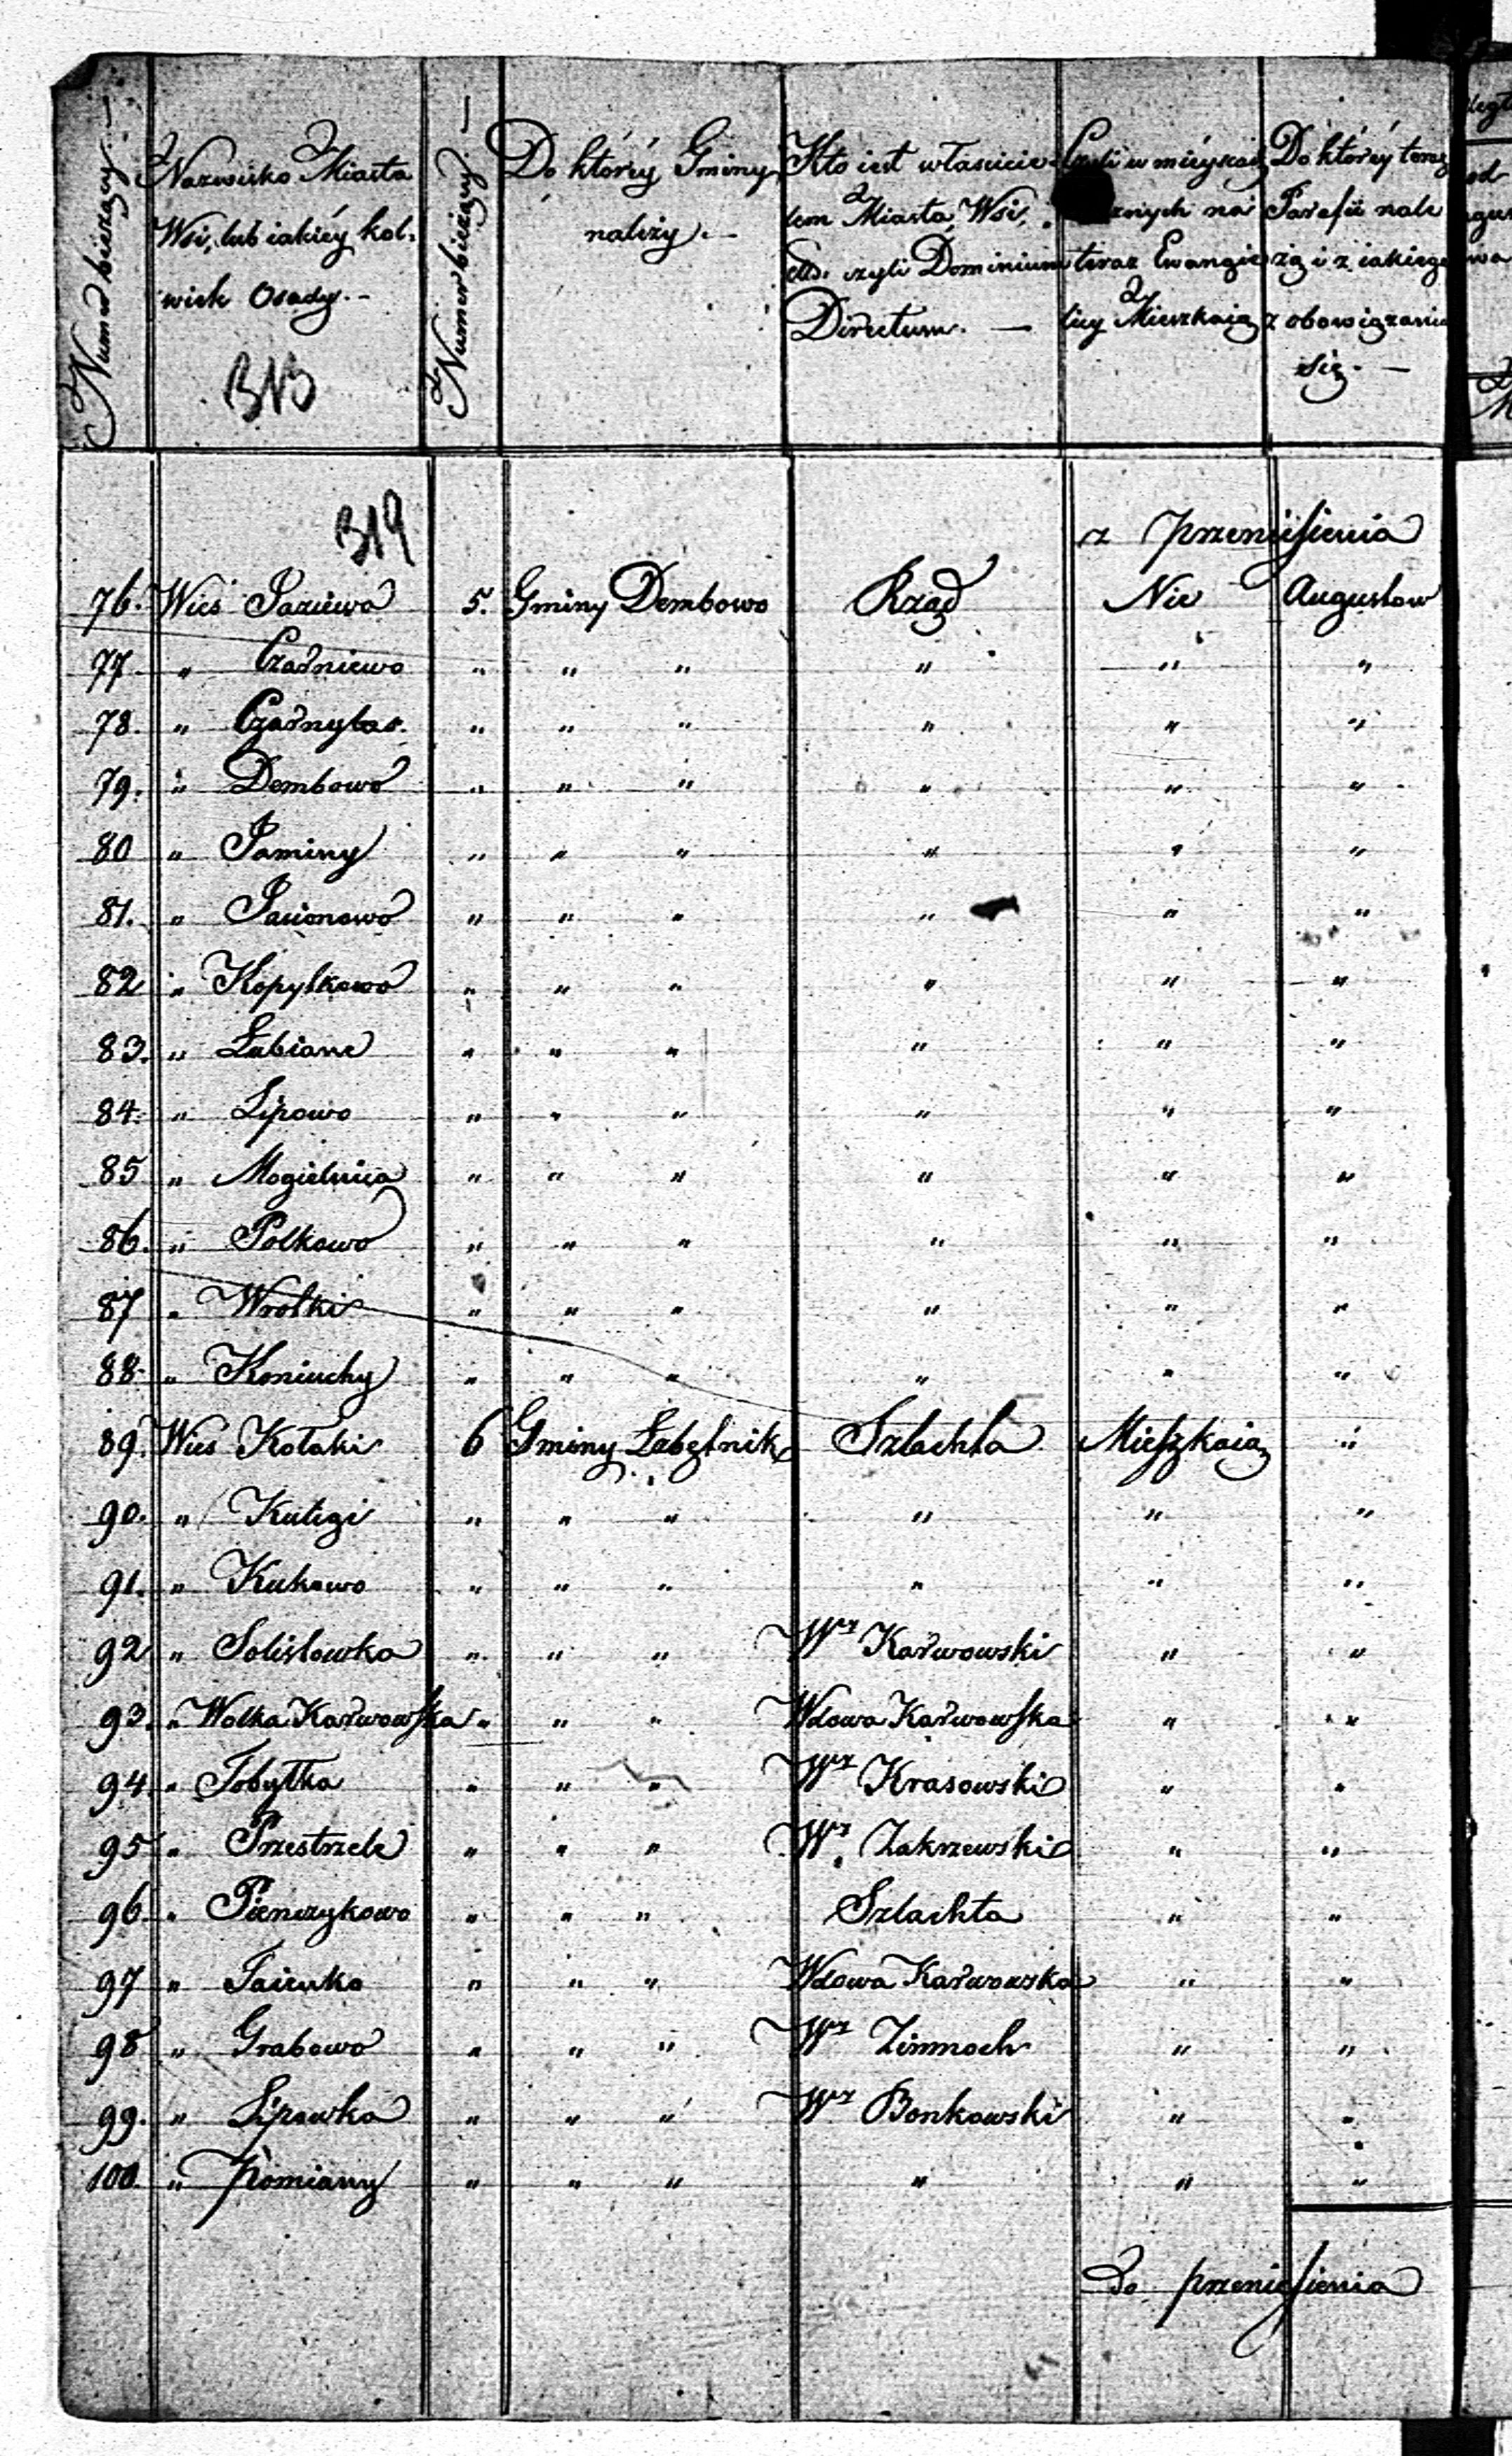 Numer bieżący. —
Nazwisko Miasta
Wsi, lub iakiéy kol-
wiek Osady. -
Numer bieżący —
Do któréy Gminy
należy. —
Kto iest właścicie-
lem Miasta, Wsi,
czyli Dominium
Directum. —
Czyli w mieysca
znych nai
teraz Ewangie
licy Mieszkaią
Do któréy teraz
Parafii nale
żą i z iakiego
z obowiązania
się. —
313
319
z przeniesienia
76. Wieś Jaziewo 5. Gminy Dembowo Rząd Nie Augustow
77 " Czarniewo " " " " " "
78. " Czarnylas. " " " " " "
79. " Dembowo " " " " " "
80 " Jaminy " " " " " "
81. " Jasionowo " " " " " "
82 " Kopytkowo " " " " " "
83. " Łubiane " " " " " "
84. " Lipowo " " " " " "
85 " Mogielnica " " " " " "
86. " Polkowo " " " " " "
87 " Wrotki " " " " " "
88. " Koniuchy " " " " " "
89. Wieś Kołaki 6 Gminy Łabętnik Szlachta Mieszkaią "
90. " Kuligi " " " " " "
91. " Kukowo " " " " " "
92 " Solistowka " " " Wż Karwowski " "
93. " Wolka Karwowska " " " Wdowa Karwowska " "
94. " Tobyłka " " " Wż Krasowski " "
95 " Przestrzele " " " Wż Zakrzewski " "
96 " Pienczykowo " " " Szlachta " "
97 " Taienko " " " Wdowa Karwowska " "
98 " Grabowo " " " Wż Zimnoch " "
99. " Lipowka " " " Wż Bonkowski " "
100. " Pomiany " " " " " "
Do przeniesienia